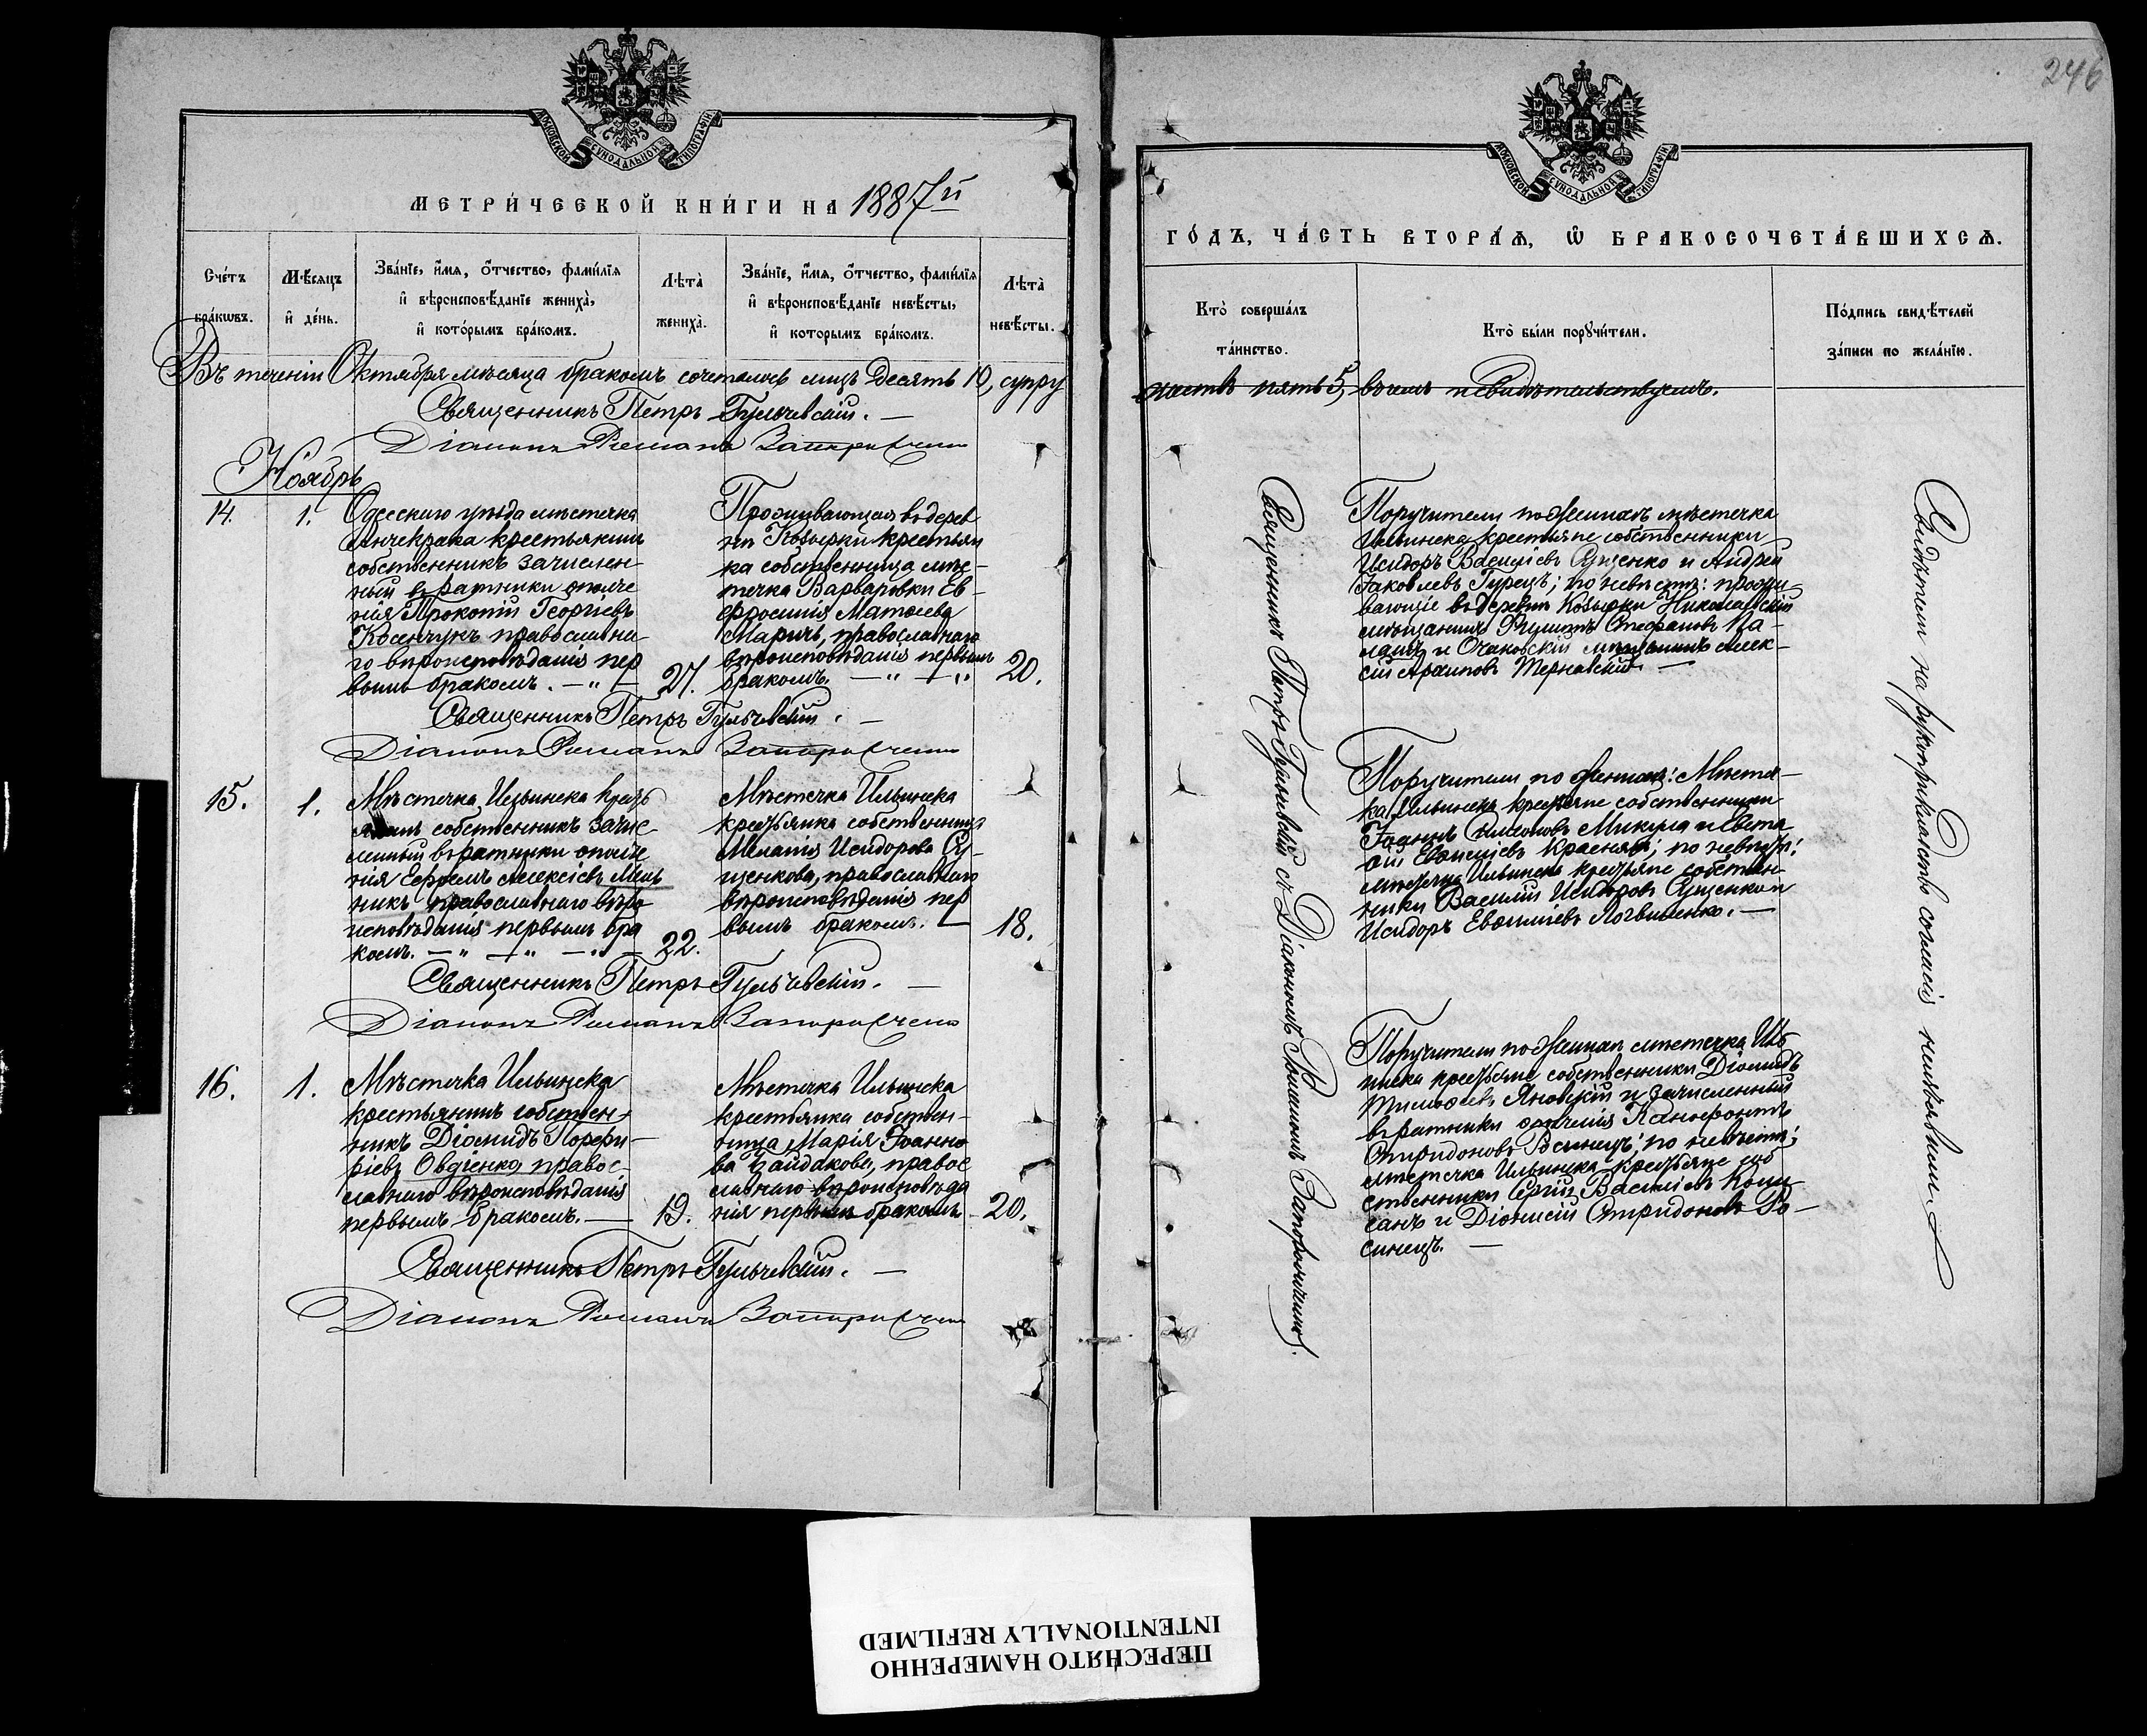 246
МОСКОВСКОЙ СѴНОДАЛЬНОЙ ТИПОГРАФІИ
МЕТРИ́ЧЕСКОЙ КНИ́ГИ НА 1887й
Сче́тъ бра́кѡвъ.
Мѣ́сяцъ и҆ де́нь.
Зва́нїе, и҆́мя, о҆́тчество, фами́лїя
и҆ вѣроисповѣ́данїе жениха̀,
и҆ кото́рымъ бра́комъ.
Лѣта̀ жениха̀.
Зва́нїе, и҆́мя, о҆́тчество, фами́лїя
и҆ вѣроисповѣ́данїе невѣ́сты,
и҆ которымъ бра́комъ.
Лѣта̀ невѣ́сты.
Въ теченіи Октября мѣсяца бракомъ сочеталось лицъ десять 10, супру
Священникъ Петръ Гульчевскій. —
Діаконъ Романъ Запорожченко
Ноябрь
14.
1.
Одесскаго уѣзда мѣстечка
Янчекрака крестьянинъ
собственникъ зачислен-
ный въ ратники ополче
нія Прокопій Георгіевъ
Косенчукъ православна-
го вѣроисповѣданія пер
вымъ бракомъ. — " —
27.
Проживающая въ дерев
нѣ Козырки крестьян
ка собственница мѣс-
течка Варваровки Ев-
фросинія Матѳеева
Маричъ, православнаго
вѣроисповѣданія первымъ
бракомъ. — " — "
20.
Священникъ Петръ Гульчевскій. —
Діаконъ Романъ Запорожченко
15.
1.
Мѣстечка Ильинска крестъ
янинъ собственникъ зачис-
ленный въ ратники ополче
нія Ефремъ Алексіевъ Мель
никъ православнаго вѣро
исповѣданія первымъ бра
комъ. — " — " — " —
22.
Мѣстечка Ильинска
крестьянка собственница
Меланія Исидорова Су-
щенкова, православнаго
вѣроисповѣданія пер
вымъ бракомъ. —
18.
Священникъ Петръ Гульчевскій. —
Діаконъ Романъ Запорожченко
16.
1.
Мѣстечка Ильинска
крестьянинъ собствен-
никъ Діомидъ Порфи-
ріевъ Овдіенко правос-
лавнаго вѣроисповѣданія
первымъ бракомъ. —
19.
Мѣстечка Ильинска
крестьянка собствен-
ница Марія Іоанно
ва Байдакова, правос
лавнаго вѣроисповѣда
нія первымъ бракомъ
20.
Священникъ Петръ Гульчевскій. —
Діаконъ Романъ Запорожченко
МОСКОВСКОЙ СѴНОДАЛЬНОЙ ТИПОГРАФІИ
ГО́ДЪ, ЧА́СТЬ ВТОРА́Я, Ѡ҆ БРАКОСОЧЕТА́ВШИХСЯ.
Кто̀ соверша́лъ
та́инство.
Кто̀ бы́ли порꙋчи́тели.
По́дпись свидѣ́телей
за́писи по жела́нїю.
жествъ пять 5, въ чемъ и свидѣтельствуемъ.
Священникъ Петръ Гульчевскій съ Діакономъ Романомъ Запорожченко.
Поручители по женихѣ мѣстечка
Ильинска крестьяне собственники
Исидоръ Василіевъ Сущенко и Андрей
Іаковлевъ Гурецъ; по невѣстѣ: прожи-
вающіе въ деревнѣ Козырки Николаевскій
мѣщанинъ Филиппъ Стефановъ Па-
и Очаковскій мѣщанинъ Алек-
сій Архиповъ Терновскій. —
Поручители по женихѣ: Мѣстеч-
ка Ильинска крестьяне собственники
Іоаннъ Микула и
Евѳиміевъ Красня; по невѣстѣ:
мѣстечка Ильинска крестьяне собствен-
ники Василій Исидоровъ Сущенко и
Исидоръ Евѳиміевъ Логвиненко. —
Поручители по женихѣ мѣстечка Иль
инска крестьяне собственники Діомидъ
Тимоѳеевъ Яновскій и зачисленный
въ ратники ополченія
Спиридоновъ Росинецъ; по невѣстѣ:
мѣстечка Ильинска крестьяне соб
ственники Сергій Василіевъ
и Діонисій Спиридоновъ Ро-
синецъ. —
Свидѣтели на рукоприкладство согласія неизъявили.
ПЕРЕСНЯТО НАМЕРЕННО
INTENTIONALLY REFILMED